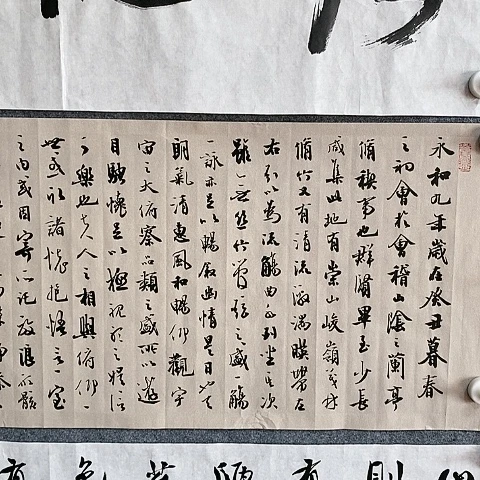 永和九年歲在癸丑暮春
之初會於會稽山陰之蘭亭
脩稧事也群賢畢至少長
咸集此地有崇山峻嶺茂林
脩竹又有清流激湍暎帶左
右引以為流觴曲水列坐其次
雖無絲竹管弦之盛一觴
一詠亦足以暢敘幽情是日也天
朗氣清惠風和暢仰觀宇
宙之大俯察品類之盛所以遊
目騁懷足以極視聽之娛信
可樂也夫人之相與俯仰一
世或取諸懷抱悟言一室
之內或因寄所託放浪形骸